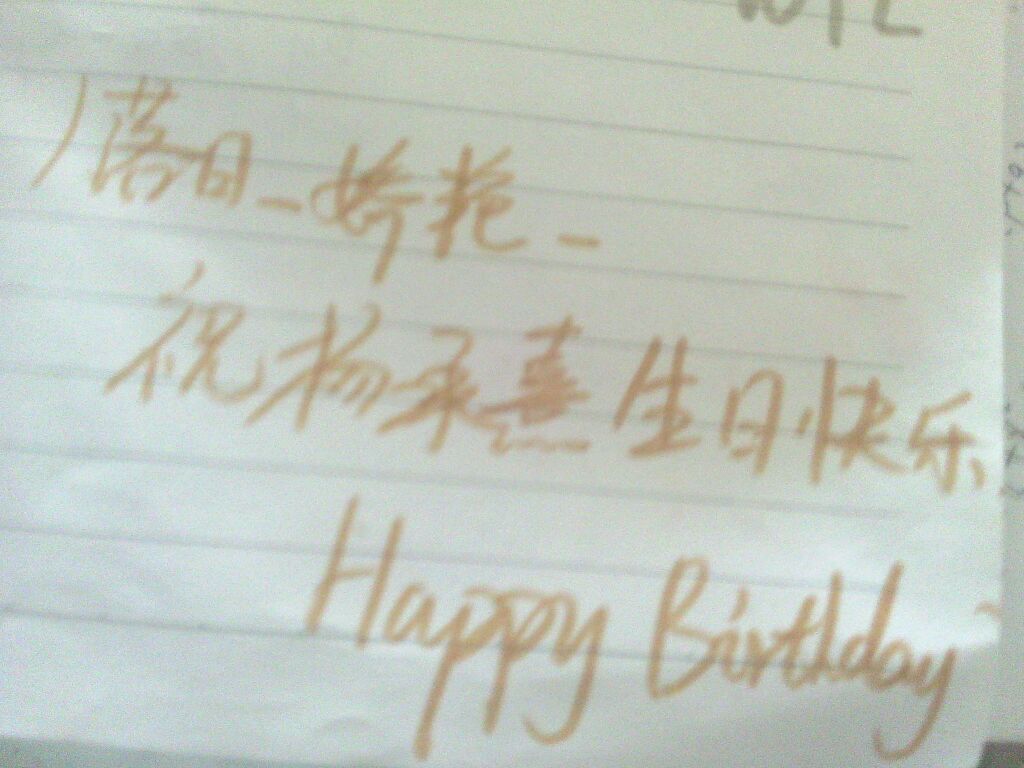 落日_娇艳_
祝杨承熹生日快乐
Happy Birthday